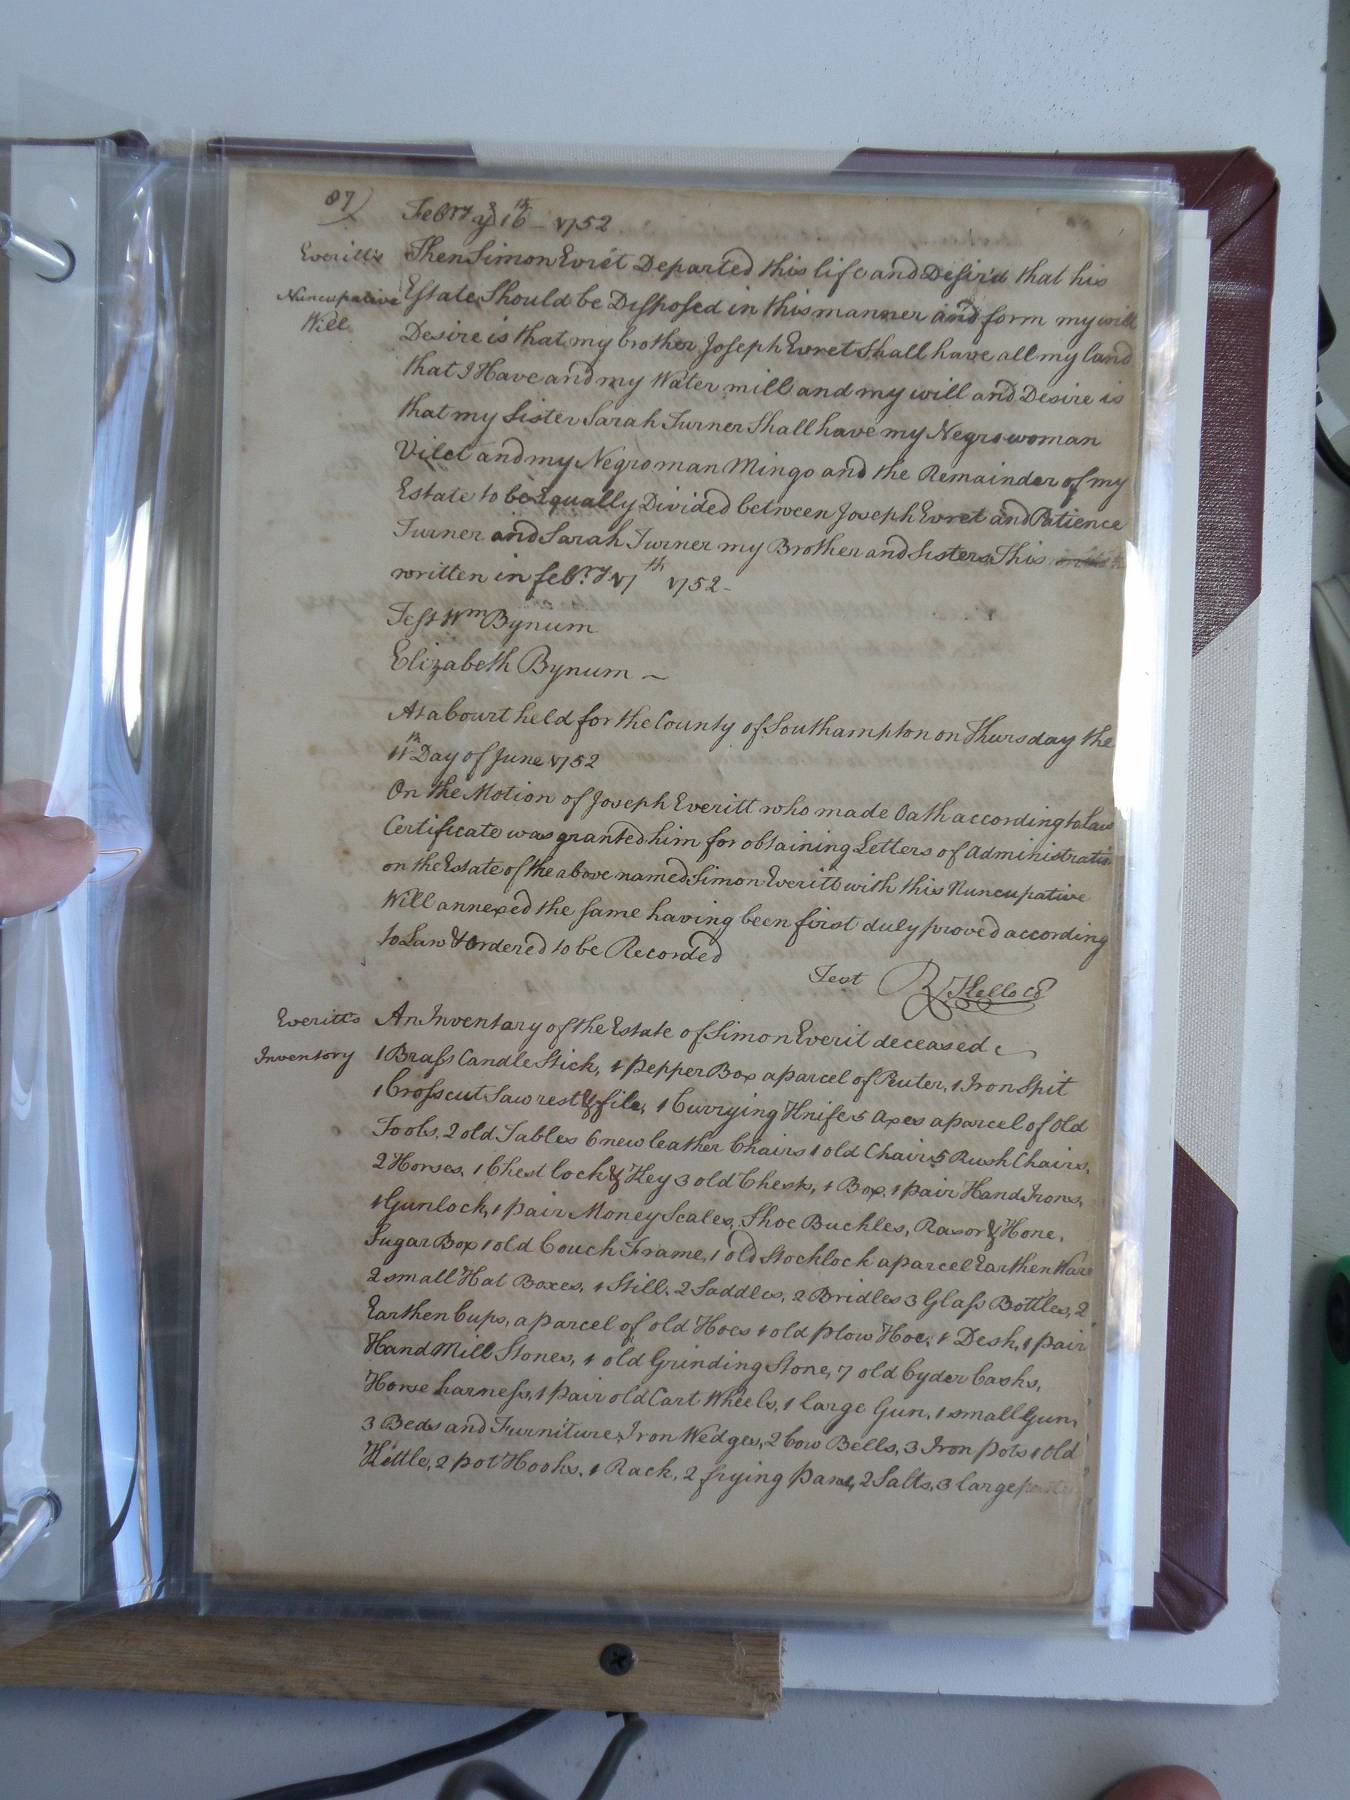 87)
Febry ye 16th 1752
Everitt's Nuncupative Will
Then Simon Evret Departed this life and Desir'd that his
Estate Should be Disposed in this manner and form my will
Desire is that my brother Joseph Evret Shall have all my land
that I Have and my Water mill and my will and Desire is
that my Sister Sarah Turner Shall have my Negro woman
and my Negro man Mingo and the Remainder of my
Estate to be Equally Divided between Joseph Evret and Patience
Turner and Sarah Turner my Brother and Sisters This
written in febry 17th 1752-
Test Wm Bynum
Elizabeth Bynum ~
At a Court held for the County of Southampton on Thursday the
11th Day of June 1752
On the Motion of Joseph Everitt who made Oath according to Law
Certificate was granted him for obtaining Letters of Administratin
on the Estate of the above named Simon Everitt with this Nuncupative
Will annexed the same having been first duly proved according
to Law & Ordered to be Recorded
Test R Kello Cl
Everitt's Inventory
An Inventary of the Estate of Simon Everit deceased
1 Brass Candle Stick, 1 Pepper Box a parcel of Peuter, 1 Iron Spit
1 Crosscut Saw rest & file, 1 Currying Knife 5 Axes a parcel of Old
Tools, 2 old Tables 6 new leather Chairs 1 old Chair 5 Rush Chairs,
2 Horses, 1 Chest lock & Key 3 old Chests, 1 Box, 1 pair Hand Irons,
1 Gunlock, 1 pair Money Scales, Shoe Buckles, Rasor & Hone,
Sugar Box 1 old Couch Frame, 1 old Stocklock a parcel Earthen Ware
2 small Hat Boxes, 1 Still, 2 Saddles, 2 Bridles 3 Glass Bottles, 2
Earthen Cups, a parcel of old Hoes 1 old plow Hoe, 1 Desk, 1 pair
Hand Mill Stones, 1 old Grinding Stone, 7 old Cyder Casks,
Horse harness, 1 pair old Cart Wheels, 1 large Gun, 1 small Gun,
3 Beds and Furniture, Iron Wedges, 2 Cow Bells, 3 Iron Pots 1 Old
Kittle, 2 pot Hooks, 1 Rack, 2 frying pans, 2 Salts, 3 large